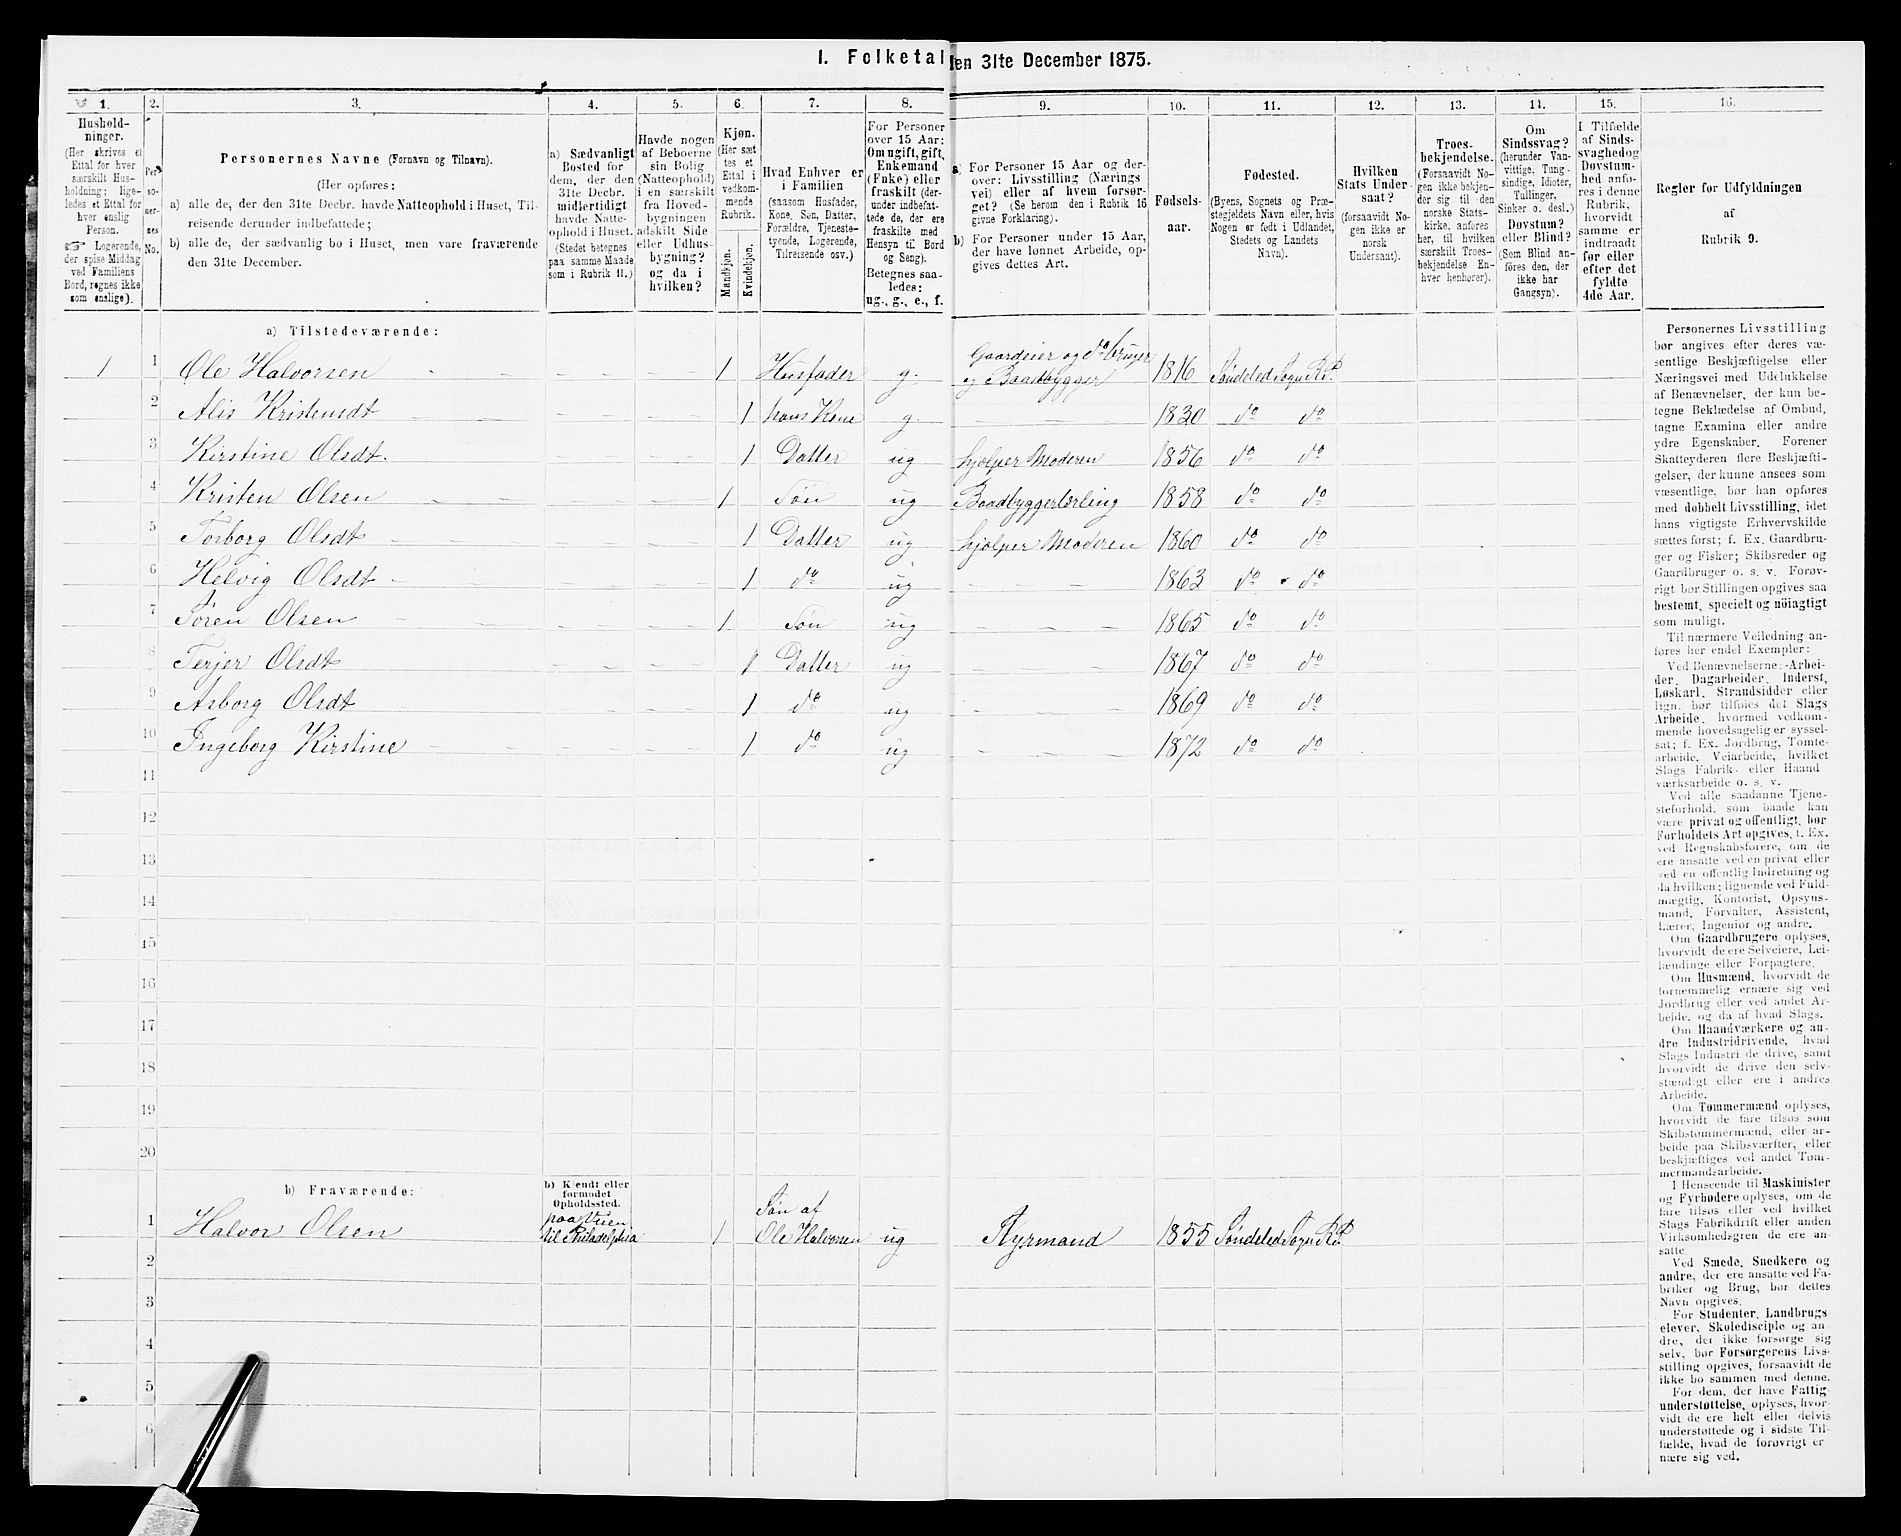 I. Folketal den 31te December 1875.
1. 2. 3. 4. 5. 6. 7. 8. 9. 10. 11. 12. 13. 14. 15. 16.
Hushold-
ninger.
(Her skrives et
Ettal for hver
særskilt Hus-
holdning; lige-
ledes et Ettal for
hver enslig
Person.
☞ Logerende,
der spise Middag
ved Familiens
Bord, regnes ikke
som enslige).
Per-
so-
ner-
nes
No.
Personernes Navne (Fornavn og Tilnavn).
(Her opføres:
a) alle de, der den 31te Decbr. havde Natteophold i Huset, Til-
reisende derunder indbefattede;
b) alle de, der sædvanlig bo i Huset, men vare fraværende
den 31te December.
a) Sædvanligt
Bosted for
dem, der den
31te Decbr.
midlertidigt
havde Natte-
ophold i Huset.
(Stedet betegnes
paa samme Maade
som i Rubrik 11.)
Havde nogen
af Beboerne
sin Bolig
(Natteophold)
i en særskilt
fra Hoved-
bygningen
adskilt Side-
eller Udhus-
bygning?
og da i
hvilken?
Kjøn.
(Her sæt-
tes et
Ettal i
vedkom-
mende
Rubrik.
Mandkjøn.
Kvindekjøn.
Hvad Enhver er
i Familien
(saasom Husfader,
Kone, Søn, Datter,
Forældre, Tjeneste-
tyende, Logerende,
Tilreisende osv.)
For Personer
over 15 Aar:
Om ugift, gift,
Enkemand
(Enke) eller
fraskilt (der-
under indbefat-
tede de, der ere
fraskilte med
Hensyn til Bord
og Seng).
Betegnes saa-
ledes:
ug., g., e., f.
a) For Personer 15 Aar og der-
over: Livsstilling (Nærings-
vei) eller af hvem forsør-
get? (Se herom den i Rubrik 16
givne Forklaring).
b) For Personer under 15 Aar,
der have lønnet Arbeide, op-
gives dettes Art.
Fødsels-
aar.
Fødested.
(Byens, Sognets og Præ-
stegjeldets Navn eller, hvis
Nogen er født i Udlandet,
Stedets og Landets
Navn).
Hvilken
Stats Under-
saat?
(forsaavidt No-
gen ikke er
norsk
Undersaat).
Troes-
bekjendelse.
(Forsaavidt No-
gen ikke bekjen-
der sig til den
norske Stats-
kirke, anføres
her, til hvilken
særskilt Troes-
bekjendelse En-
hver henhører).
Om
Sindssvag?
(herunder Van-
vittige, Tung-
sindige, Idioter,
Tullinger,
Sinker o. desl.)
Døvstum?
eller Blind?
(Som Blind an-
føres den, der
ikke har
Gangsyn).
I Tilfælde
af Sinds-
svaghed og
Døvstum-
hed anfø-
res i denne
Rubrik,
hvorvidt
samme er
indtraadt
før eller
efter det
fyldte
4de Aar.
Regler for Udfyldningen
af
Rubrik 9.
a) Tilstedeværende:
1 1 Ole Halvorsen 1 Husfader g. Gaardeier og do bruger og Baadbygger 1816 Søndeled Sogn R. P.
2 Alis Kristensdt 1 hans Kone g. 1830 do do
3 Kirstine Olsdt. 1 Datter ug hjelper Moderen 1856 do do
4 Kristen Olsen 1 Søn ug Baadbyggerlærling 1858 do do
5 Torborg Olsdt 1 Datter ug hjelper Moderen 1860 do do
6 Helvig Olsdt 1 do ug 1863 do do
7 Søren Olsen 1 Søn ug 1865 do do
8 Terjer Olsdt 1 Datter ug 1867 do do
9 Asborg Olsdt 1 do ug 1869 do do
10 Ingeborg Kirstine 1 do ug 1872 do do
11
12
13
14
15
16
17
18
19
20
b) Fraværende:
b) Kjendt eller
formodet
Opholdssted.
1 Halvor Olsen paa Veien til Philadelphia 1 Søn af Ole Halvorsen ug Styrmand 1855 Søndeled Sogn R. P.
2
3
4
5
6
Personernes Livsstilling
bør angives efter deres væ-
sentlige Beskjæftigelse eller
Næringsvei med Udelukkelse
af Benævnelser, der kun be-
tegne Beklædelse af Ombud,
tagne Examina eller andre
ydre Egenskaber. Forener
Skatteyderen flere Beskjæfti-
gelser, der kunne ansees som
væsentlige, bør han opføres
med dobbelt Livsstilling, idet
hans vigtigste Erhvervskilde
sættes først; f. Ex. Gaardbru-
ger og Fisker; Skibsreder og
Gaardbruger o. s. v. Forøv-
rigt bør Stillingen opgives saa
bestemt, specielt og nöiagtigt
som muligt.
Til nærmere Veiledning an-
føres her endel Exempler:
Ved Benævnelserne: Arbei-
der, Dagarbeider, Inderst,
Løskarl, Strandsidder eller
lign. bør tilføies det Slags
Arbeide, hvormed vedkom-
mende hovedsagelig er syssel-
sat; f. Ex. Jordbrug, Tomte-
arbeide, Veiarbeide, hvilket
Slags Fabrik- eller Haand-
værksarbeide o. s. v.
Ved alle saadanne Tjene-
steforhold, som baade kan
være privat og offentligt, bør
Forholdets Art opgives, t. Ex.
ved Regnskabsførere, om de
ere ansatte ved en privat eller
ved en offentlig Indretning og
da hvilken; lignende ved Fuld-
mægtig, Kontorist, Opsyns-
mand, Forvalter, Assistent,
Lærer, Ingeniør og andre.
Om Gaardbrugere oplyses,
hvorvidt de ere Selveiere, Lei-
lændinge eller Forpagtere.
Om Husmænd, hvorvidt de
fornemmelig ernære sig ved
Jordbrug eller ved andet Ar-
beide, og da af hvad Slags.
Om Haandværkere og an-
dre Industridrivende, hvad
Slags Industri de drive, samt
hvorvidt de drive den selv-
stændigt eller ere i andres
Arbeide.
Om Tømmermænd oplyses,
hvorvidt de fare tilsøs som
Skibstømmermænd, eller ar-
beide paa Skibsværfter, eller
beskjæftiges ved andet Tøm-
mermandsarbeide.
I Henseende til Maskinister
og Fyrbødere oplyses, om de
fare tilsøs eller ved hvilket
Slags Fabrikdrift eller anden
Virksomhedsgren de ere an-
satte.
Ved Smede, Snedkere og
andre, der ere ansatte ved Fa-
briker og Brug, bør dettes
Navn opgives.
For Studenter, Landbrugs-
elever, Skoledisciple og an-
dre, der ikke forsørge sig
selv, bør Forsørgerens Livs-
stilling opgives, forsaavidt de
ikke bo sammen med denne.
For dem, der have Fattig-
understøttelse, oplyses, hvor-
vidt de ere helt eller delvis
understøttede og i sidste Til-
fælde, hvad de forøvrigt er-
nære sig ved.